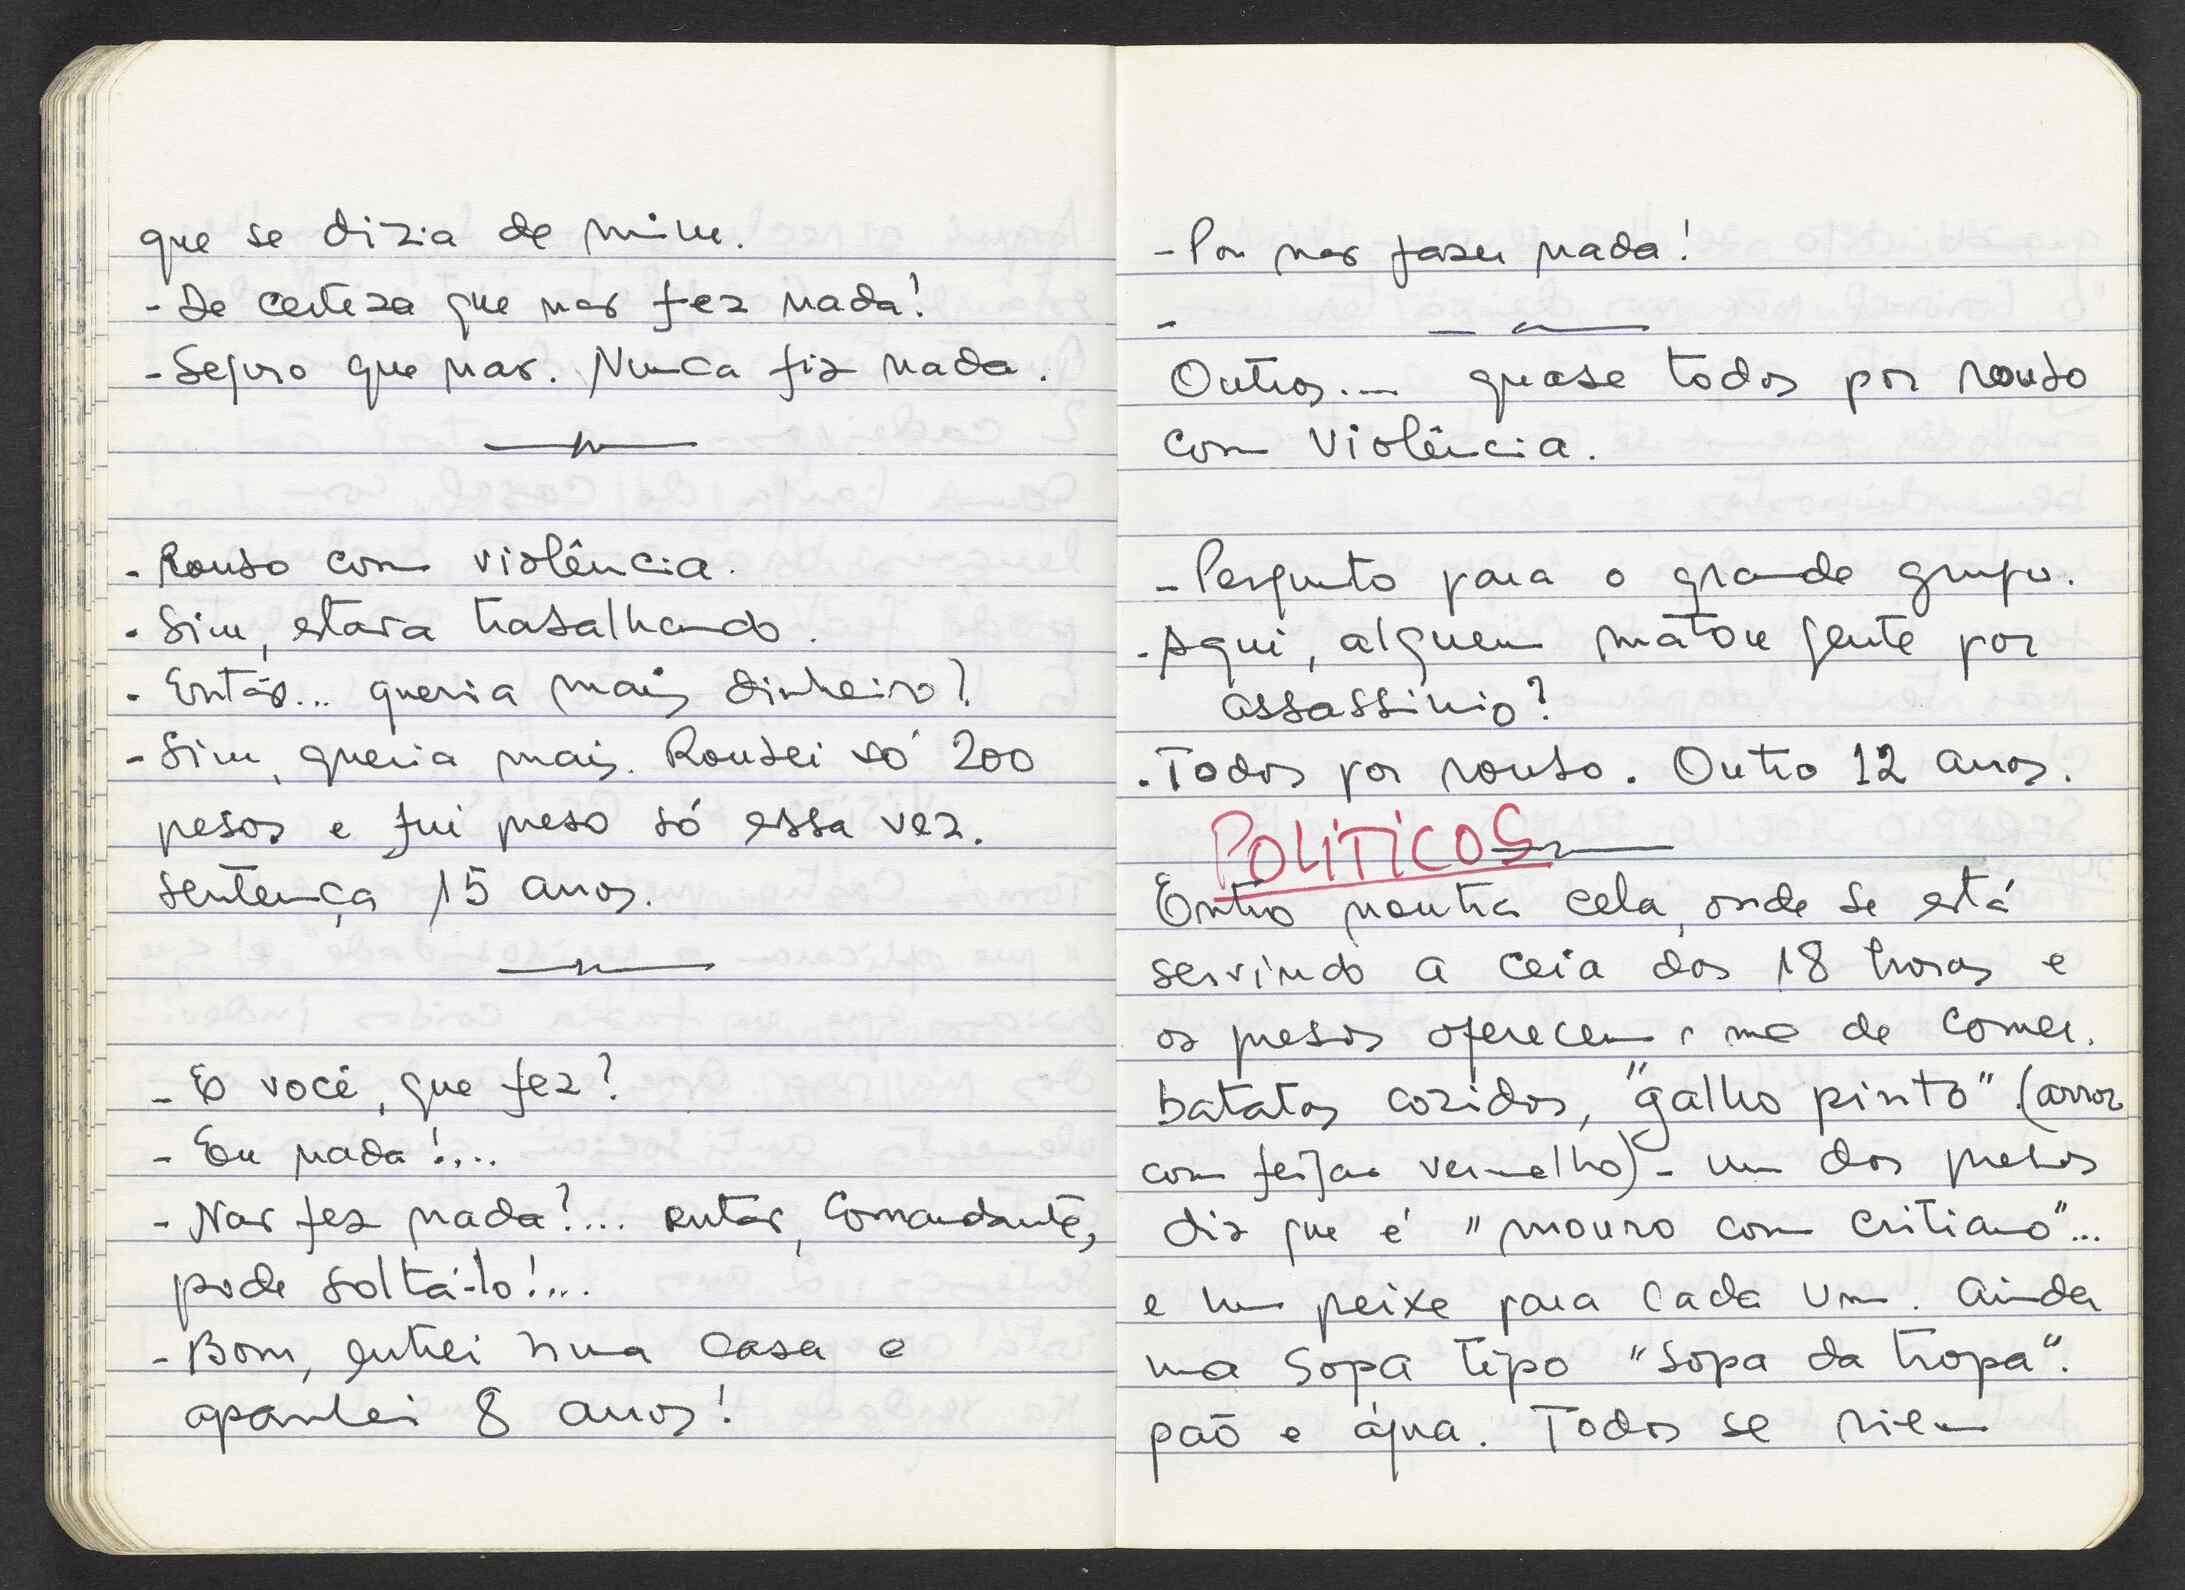 que se dizia de mim.
- De certeza que não fez nada!
- Seguro que não. Nunca fiz nada.
- Roubo com violência.
- Sim, estava trabalhando.
- Então... queria mais dinheiro?
- Sim, queria mais. Roubei só 200
pesos e fui preso só essa vez.
sentença 15 anos.
- E você, que fez?
- Eu nada!...
- Não fez nada?... então, Comandante,
pode soltá-lo!...
- Bom, entrei numa casa e
apanhei 8 anos!
- Por não fazer nada!
-
Outros... quase todos por roubo
com violência.
- Pergunto para o grande grupo.
- Aqui, alguem matou gente por
assassinio?
- Todos por roubo. Outro 12 anos.
POLITICOS
Entro noutra cela, onde se está
servindo a ceia das 18 horas e
os presos oferecem-me de comer.
batatas cozidas, "galho pinto" (arroz
com feijão vermelho) - um dos presos
diz que é "mouro com cristiano"...
e um peixe para cada um. Ainda
uma sopa tipo "sopa da tropa".
pão e água. Todos se riem